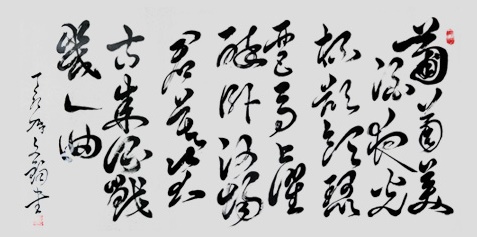 葡萄美
酒夜光
杯欲飲琵
琶馬上催
醉卧沙場
君莫笑
古來征戰
幾人回